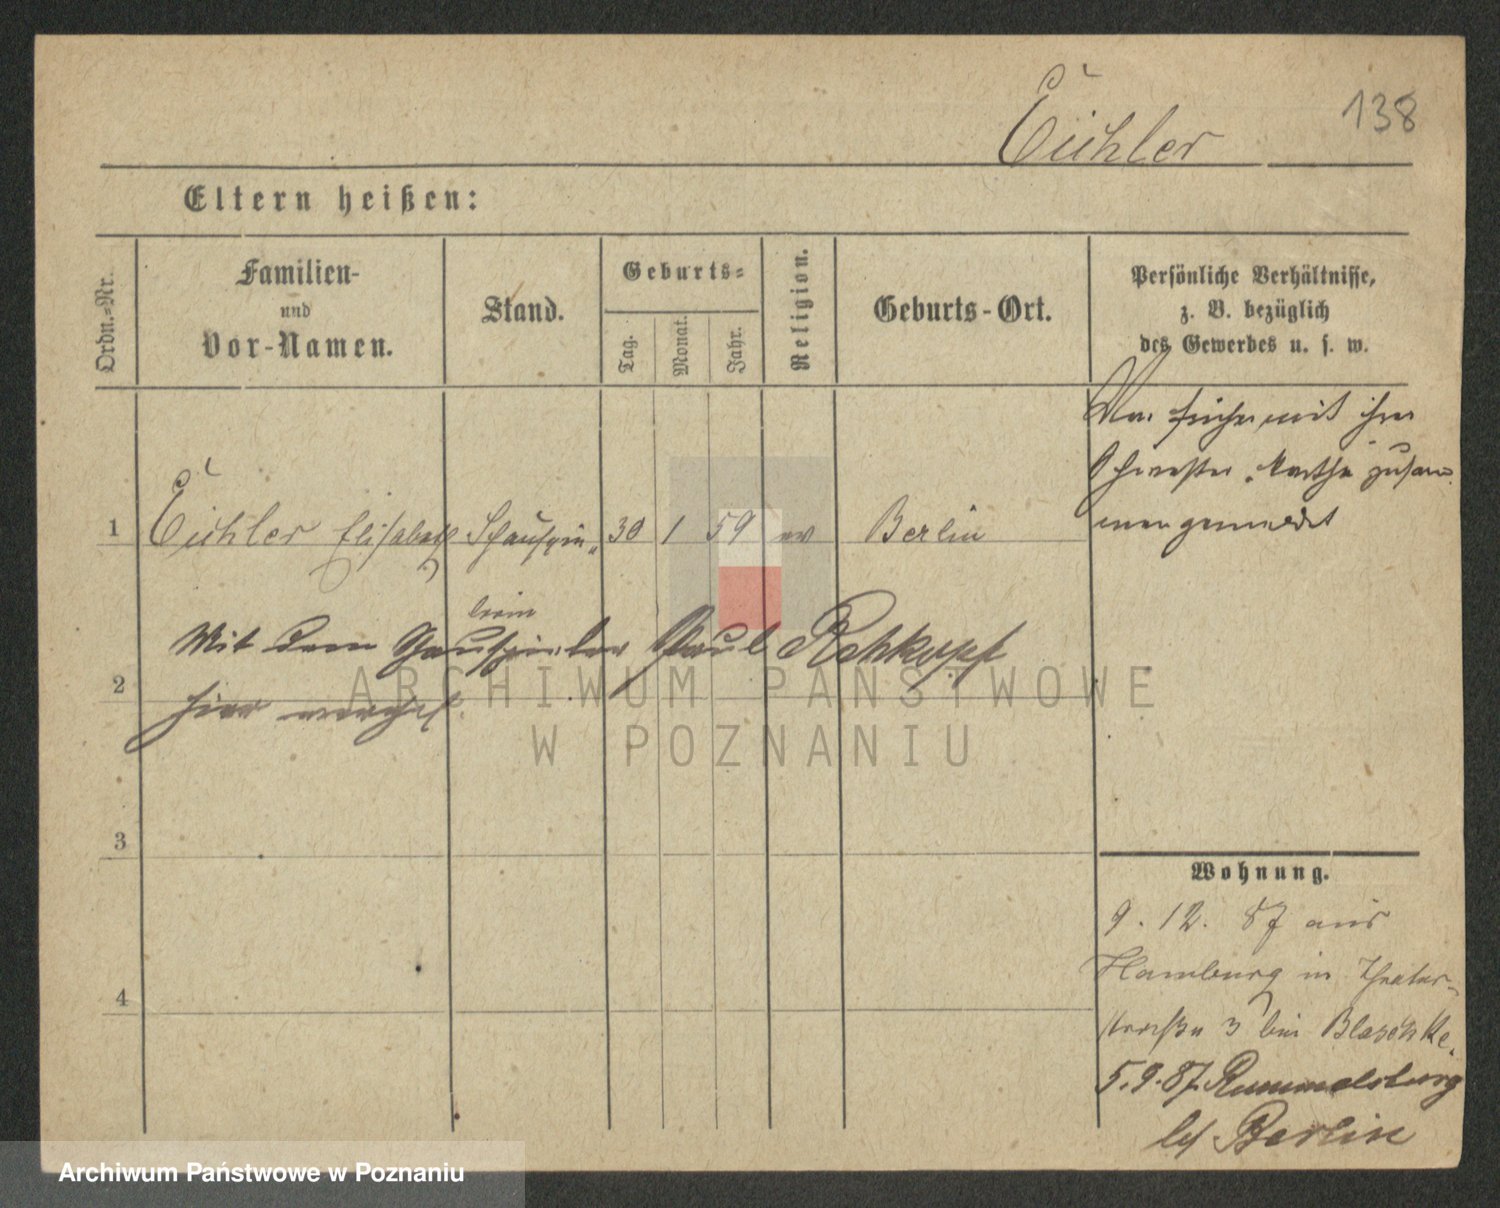 138
Eichler
Eltern heißen:
Ordn.-Nr.
Familien-
und
Vor-Namen.
Stand.
Geburts-
Tag.
Monat.
Jahr.
Religion.
Geburts-Ort.
Persönliche Verhältnisse,
z. B. bezüglich
des Gewerbes u. s. w.
War früher mit ihrer
Schwester Martha zusam-
men gemeldet
1 Eichler Elisabeth Schauspin 30 1 59 ev Berlin
Mit dem Schauspieler Paul Rehkopf
2
hier
3
4
Wohnung.
9. 12. 87 aus
Hamburg in Theater-
straße 3 bei Blaschke.
5.9.87. Rummelsburg
b/ Berlin
ARCHIWUM PAŃSTWOWE
W POZNANIU
Archiwum Państwowe w Poznaniu